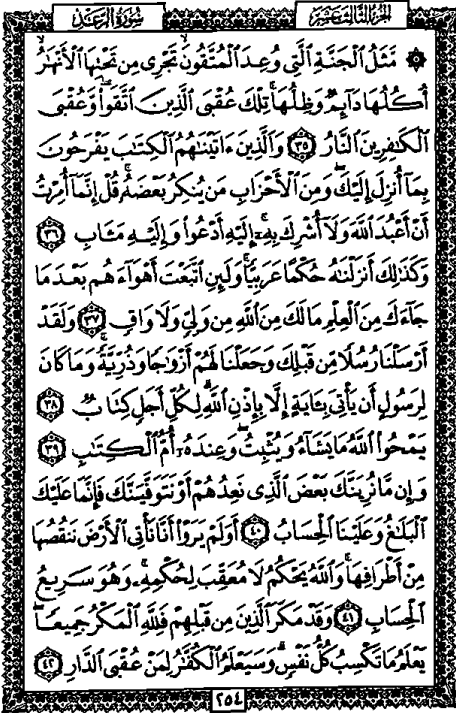 سُورَةُ الرَّعْدِ
الجزء الثالث عشر
۞ مَّثَلُ الْجَنَّةِ الَّتِي وُعِدَ الْمُتَّقُونَ تَجْرِي مِن تَحْتِهَا الْأَنْهَارُ
أُكُلُهَا دَآئِمٌ وَظِلُّهَا ۚ تِلْكَ عُقْبَى الَّذِينَ اتَّقَوا ۖ وَّعُقْبَى
الْكَافِرِينَ النَّارُ ٣٥ وَالَّذِينَ ءَاتَيْنَاهُمُ الْكِتَابَ يَفْرَحُونَ
بِمَا أُنزِلَ إِلَيْكَ ۖ وَمِنَ الْأَحْزَابِ مَن يُنكِرُ بَعْضَهُ ۚ قُلْ إِنَّمَا أُمِرْتُ
أَنْ أَعْبُدَ اللَّهَ وَلَا أُشْرِكَ بِهِ ۚ إِلَيْهِ أَدْعُوا وَإِلَيْهِ مَـَٔابِ ٣٦
وَكَذَٰلِكَ أَنزَلْنَاهُ حُكْمًا عَرَبِيًّا ۚ وَلَئِنِ اتَّبَعْتَ أَهْوَآءَهُم بَعْدَ مَا
جَآءَكَ مِنَ الْعِلْمِ مَا لَكَ مِنَ اللَّهِ مِن وَلِيٍّ وَلَا وَاقٍ ٣٧ وَلَقَدْ
أَرْسَلْنَا رُسُلًا مِّن قَبْلِكَ وَجَعَلْنَا لَهُمْ أَزْوَاجًا وَذُرِّيَّةً ۚ وَمَا كَانَ
لِرَسُولٍ أَن يَأْتِيَ بِـَٔايَةٍ إِلَّا بِإِذْنِ اللَّهِ ۗ لِكُلِّ أَجَلٍ كِتَابٌ ٣٨
يَمْحُوا اللَّهُ مَا يَشَآءُ وَيُثْبِتُ ۖ وَعِندَهُ أُمُّ الْكِتَابِ ٣٩
وَإِن مَّا نُرِيَنَّكَ بَعْضَ الَّذِي نَعِدُهُمْ أَوْ نَتَوَفَّيَنَّكَ فَإِنَّمَا عَلَيْكَ
الْبَلَاغُ وَعَلَيْنَا الْحِسَابُ ٤٠ أَوَلَمْ يَرَوْا أَنَّا نَأْتِي الْأَرْضَ نَنقُصُهَا
مِنْ أَطْرَافِهَا ۚ وَاللَّهُ يَحْكُمُ لَا مُعَقِّبَ لِحُكْمِهِ ۚ وَهُوَ سَرِيعُ
الْحِسَابِ ٤١ وَقَدْ مَكَرَ الَّذِينَ مِن قَبْلِهِمْ فَلِلَّهِ الْمَكْرُ جَمِيعًا ۖ
يَعْلَمُ مَا تَكْسِبُ كُلُّ نَفْسٍ ۗ وَسَيَعْلَمُ الْكُفَّارُ لِمَنْ عُقْبَى الدَّارِ ٤٢
٢٥٤